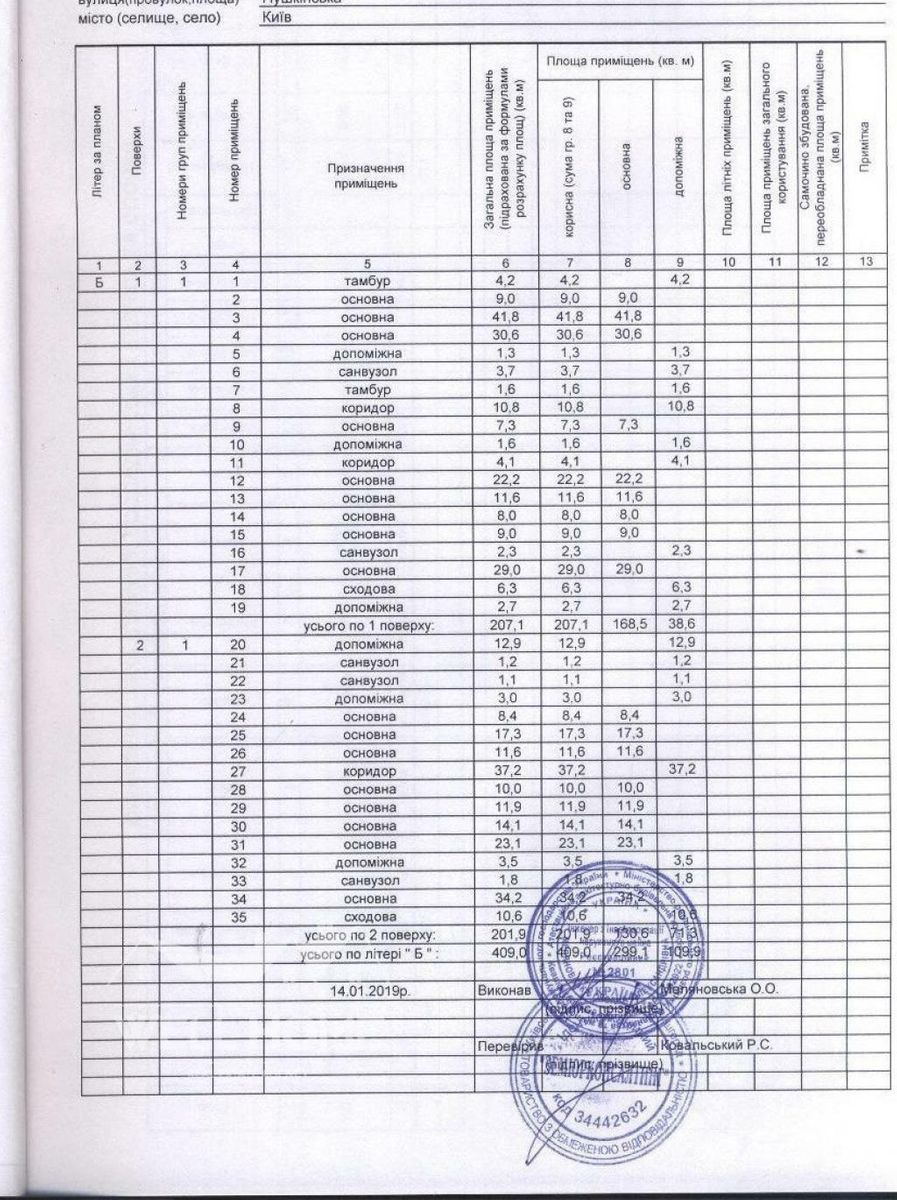 вулиця(провулок,площа) Пушкіновка
місто (селище, село) Київ
Літер за планом
Поверхи
Номери груп приміщень
Номер приміщень
Призначення приміщень
Загальна площа приміщень (підрахована за формулами розрахунку площ) (кв.м
Площа приміщень (кв. м)
корисна (сума гр. 8 та 9)
основна
допоміжна
Площа літніх приміщень (кв.м)
Площа приміщень загального користування (кв.м)
Самочино збудована. переобладнана площа приміщень (кв.м)
Примітка
1 2 3 4 5 6 7 8 9 10 11 12 13
Б 1 1 1 тамбур 4,2 4,2 4,2
2 основна 9,0 9,0 9,0
3 основна 41,8 41,8 41,8
4 основна 30,6 30,6 30,6
5 допоміжна 1,3 1,3 1,3
6 санвузол 3,7 3,7 3,7
7 тамбур 1,6 1,6 1,6
8 коридор 10,8 10,8 10,8
9 основна 7,3 7,3 7,3
10 допоміжна 1,6 1,6 1,6
11 коридор 4,1 4,1 4,1
12 основна 22,2 22,2 22,2
13 основна 11,6 11,6 11,6
14 основна 8,0 8,0 8,0
15 основна 9,0 9,0 9,0
16 санвузол 2,3 2,3 2,3
17 основна 29,0 29,0 29,0
18 сходова 6,3 6,3 6,3
19 допоміжна 2,7 2,7 2,7
усього по 1 поверху: 207,1 207,1 168,5 38,6
2 1 20 допоміжна 12,9 12,9 12,9
21 санвузол 1,2 1,2 1,2
22 санвузол 1,1 1,1 1,1
23 допоміжна 3,0 3,0 3,0
24 основна 8,4 8,4 8,4
25 основна 17,3 17,3 17,3
26 основна 11,6 11,6 11,6
27 коридор 37,2 37,2 37,2
28 основна 10,0 10,0 10,0
29 основна 11,9 11,9 11,9
30 основна 14,1 14,1 14,1
31 основна 23,1 23,1 23,1
32 допоміжна 3,5 3,5 3,5
33 санвузол 1,8 1,8 1,8
34 основна 34,2 34,2 34,2
35 сходова 10,6 10,6 10,6
усього по 2 поверху: 201,9 201,9 130,6 71,3
усього по літері " Б " : 409,0 409,0 299,1 109,9
14.01.2019р. Виконав Маляновська О.О.
(підпис, прізвище)
Перевірив Ковальський Р.С.
(підпис, прізвище)
УКРАЇНА
код 34442632
ТОВАРИСТВО З ОБМЕЖЕНОЮ ВІДПОВІДАЛЬНІСТЮ